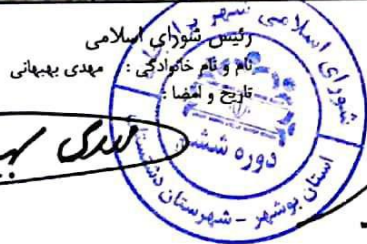 رئیس شورای اسلامی
نام و نام خانوادگی : مهدی بهبهانی
تاریخ و امضا :
شورای اسلامی شهر
دوره ششم
استان بوشهر - شهرستان